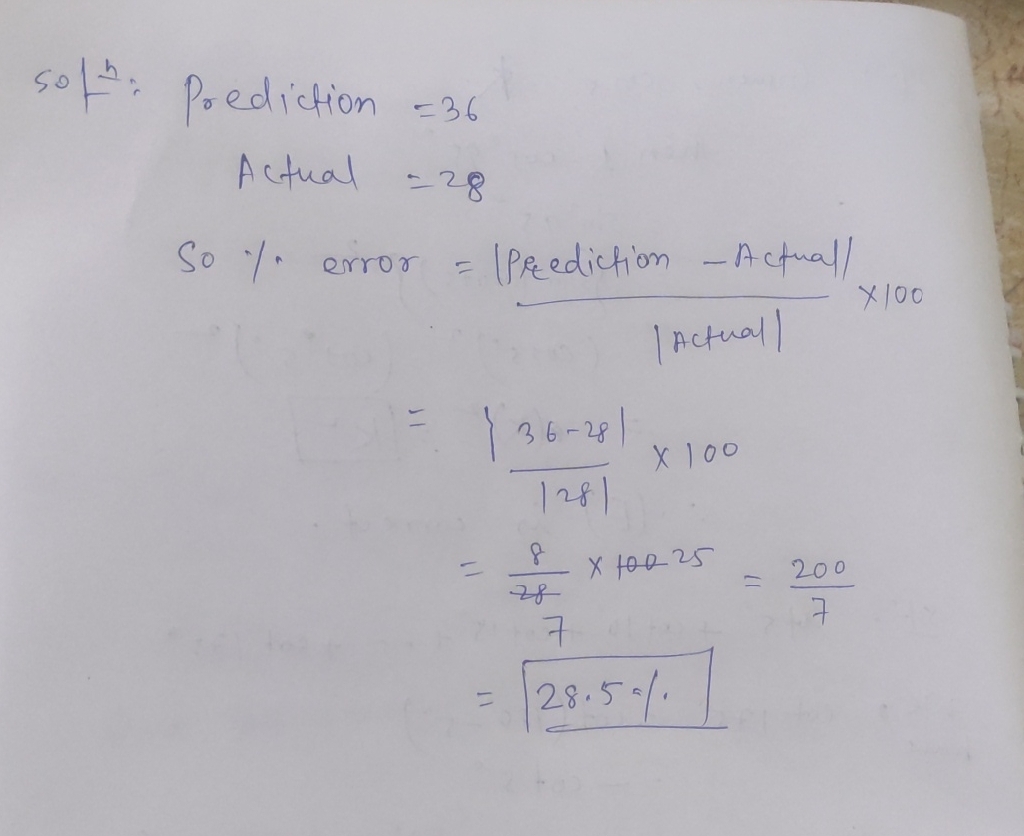 Solⁿ: Prediction = 36
Actual = 28
So % error = |Prediction - Actual| / |Actual| × 100
= |36-28| / |28| × 100
= 8 / 28 × 100 25 = 200 / 7
7
= 28.5%